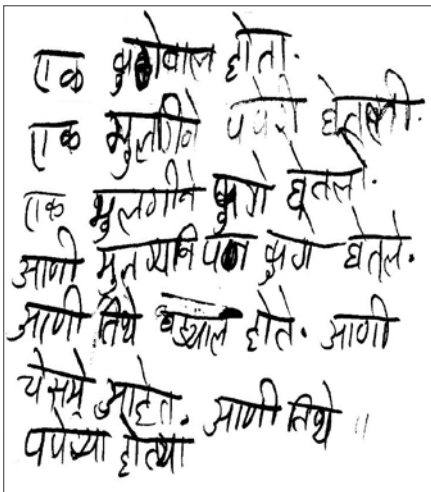 एक फुगेवाला होता.
एक मुलगीने पपेरी घेतली.
एक मुलगीने फुगे घेतले.
आणी मुलग्यानि पण फुगे घेतले.
आणी तिथे घड्याल होते. आणी
चेसमे आहेत. आणी तिथे
पपेऱ्या होत्या